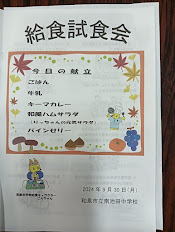 給食試食会
今日の献立
ごはん
牛乳
キーマカレー
和風ハムサラダ
パインゼリー
2024年9月30日(月)
和泉市立南池田中学校